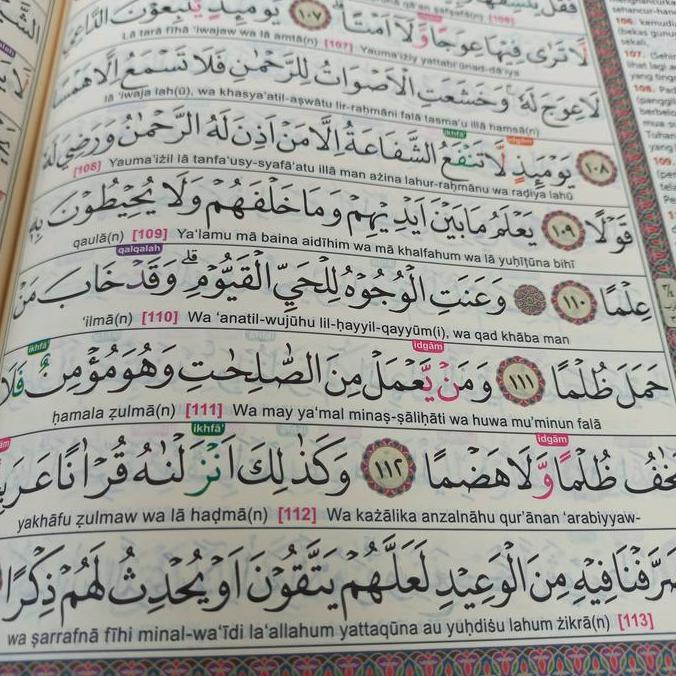 لَا تَرٰى فِيْهَا عِوَجًا وَّلَآ اَمْتًا ۱۰۷ يَوْمَىِٕذٍ يَّتَّبِعُوْنَ الدَّاعِيَ
Lā tarā fīhā ‘iwajaw wa lā amtā(n) [107] Yauma'iżiy yattabi‘ūnad-dā‘iya
لَا عِوَجَ لَهٗ وَخَشَعَتِ الْاَصْوَاتُ لِلرَّحْمٰنِ فَلَا تَسْمَعُ اِلَّا هَمْسًا
lā ‘iwaja lah(ū), wa khasya‘atil-aṣwātu lir-raḥmāni falā tasma‘u illā hamsā(n)
ikhfā' idgām
۱۰۸ يَوْمَىِٕذٍ لَّا تَنْفَعُ الشَّفَاعَةُ اِلَّا مَنْ اَذِنَ لَهُ الرَّحْمٰنُ وَرَضِيَ لَهٗ
[108] Yauma'iżil lā tanfa‘usy-syafā‘atu illā man ażina lahur-raḥmānu wa raḍiya lahū
قَوْلًا ۱۰۹ يَعْلَمُ مَا بَيْنَ اَيْدِيْهِمْ وَمَا خَلْفَهُمْ وَلَا يُحِيْطُوْنَ بِهٖ
qaulā(n) [109] Ya‘lamu mā baina aidīhim wa mā khalfahum wa lā yuḥīṭūna bihī
qalqalah
عِلْمًا ۱۱۰ وَعَنَتِ الْوُجُوْهُ لِلْحَيِّ الْقَيُّوْمِۗ وَقَدْ خَابَ مَنْ
‘ilmā(n) [110] Wa ‘anatil-wujūhu lil-ḥayyil-qayyūm(i), wa qad khāba man
ikhfā' idgām
حَمَلَ ظُلْمًا ۱۱۱ وَمَنْ يَّعْمَلْ مِنَ الصّٰلِحٰتِ وَهُوَ مُؤْمِنٌ فَلَا
ḥamala ẓulmā(n) [111] Wa may ya‘mal minaṣ-ṣāliḥāti wa huwa mu'minun falā
ikhfā' idgām
يَخٰفُ ظُلْمًا وَّلَا هَضْمًا ۱۱۲ وَكَذٰلِكَ اَنْزَلْنٰهُ قُرْاٰنًا
yakhāfu ẓulmaw wa lā haḍmā(n) [112] Wa każālika anzalnāhu qur'ānan ‘arabiyyaw-
صَرَّفْنَا فِيْهِ مِنَ الْوَعِيْدِ لَعَلَّهُمْ يَتَّقُوْنَ اَوْ يُحْدِثُ لَهُمْ ذِكْرًا
wa ṣarrafnā fīhi minal-wa‘īdi la‘allahum yattaqūna au yuḥdiṡu lahum żikrā(n) [113]